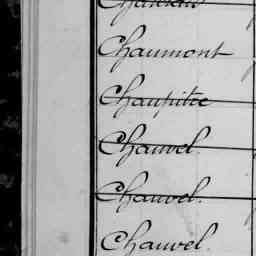 Chaumont
Chaupitre
Chauvel.
Chauvel.
Chauvel.